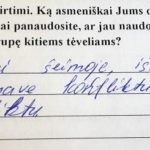 irtimi. Ką asmeniškai Jums d
ai panaudosite, ar jau naudo
rupę kitiems tėveliams?
i šeimoje, iš
nave konfliktu
iktu